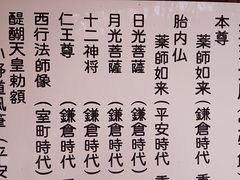 本尊
薬師如来（鎌倉時代
胎内仏
薬師如来（平安時代 重
日光菩薩（鎌倉時代
月光菩薩（鎌倉時代
十二神将（鎌倉時代
仁王尊（鎌倉時代
西行法師像（室町時代）
醍醐天皇勅額
小野道風筆（平安